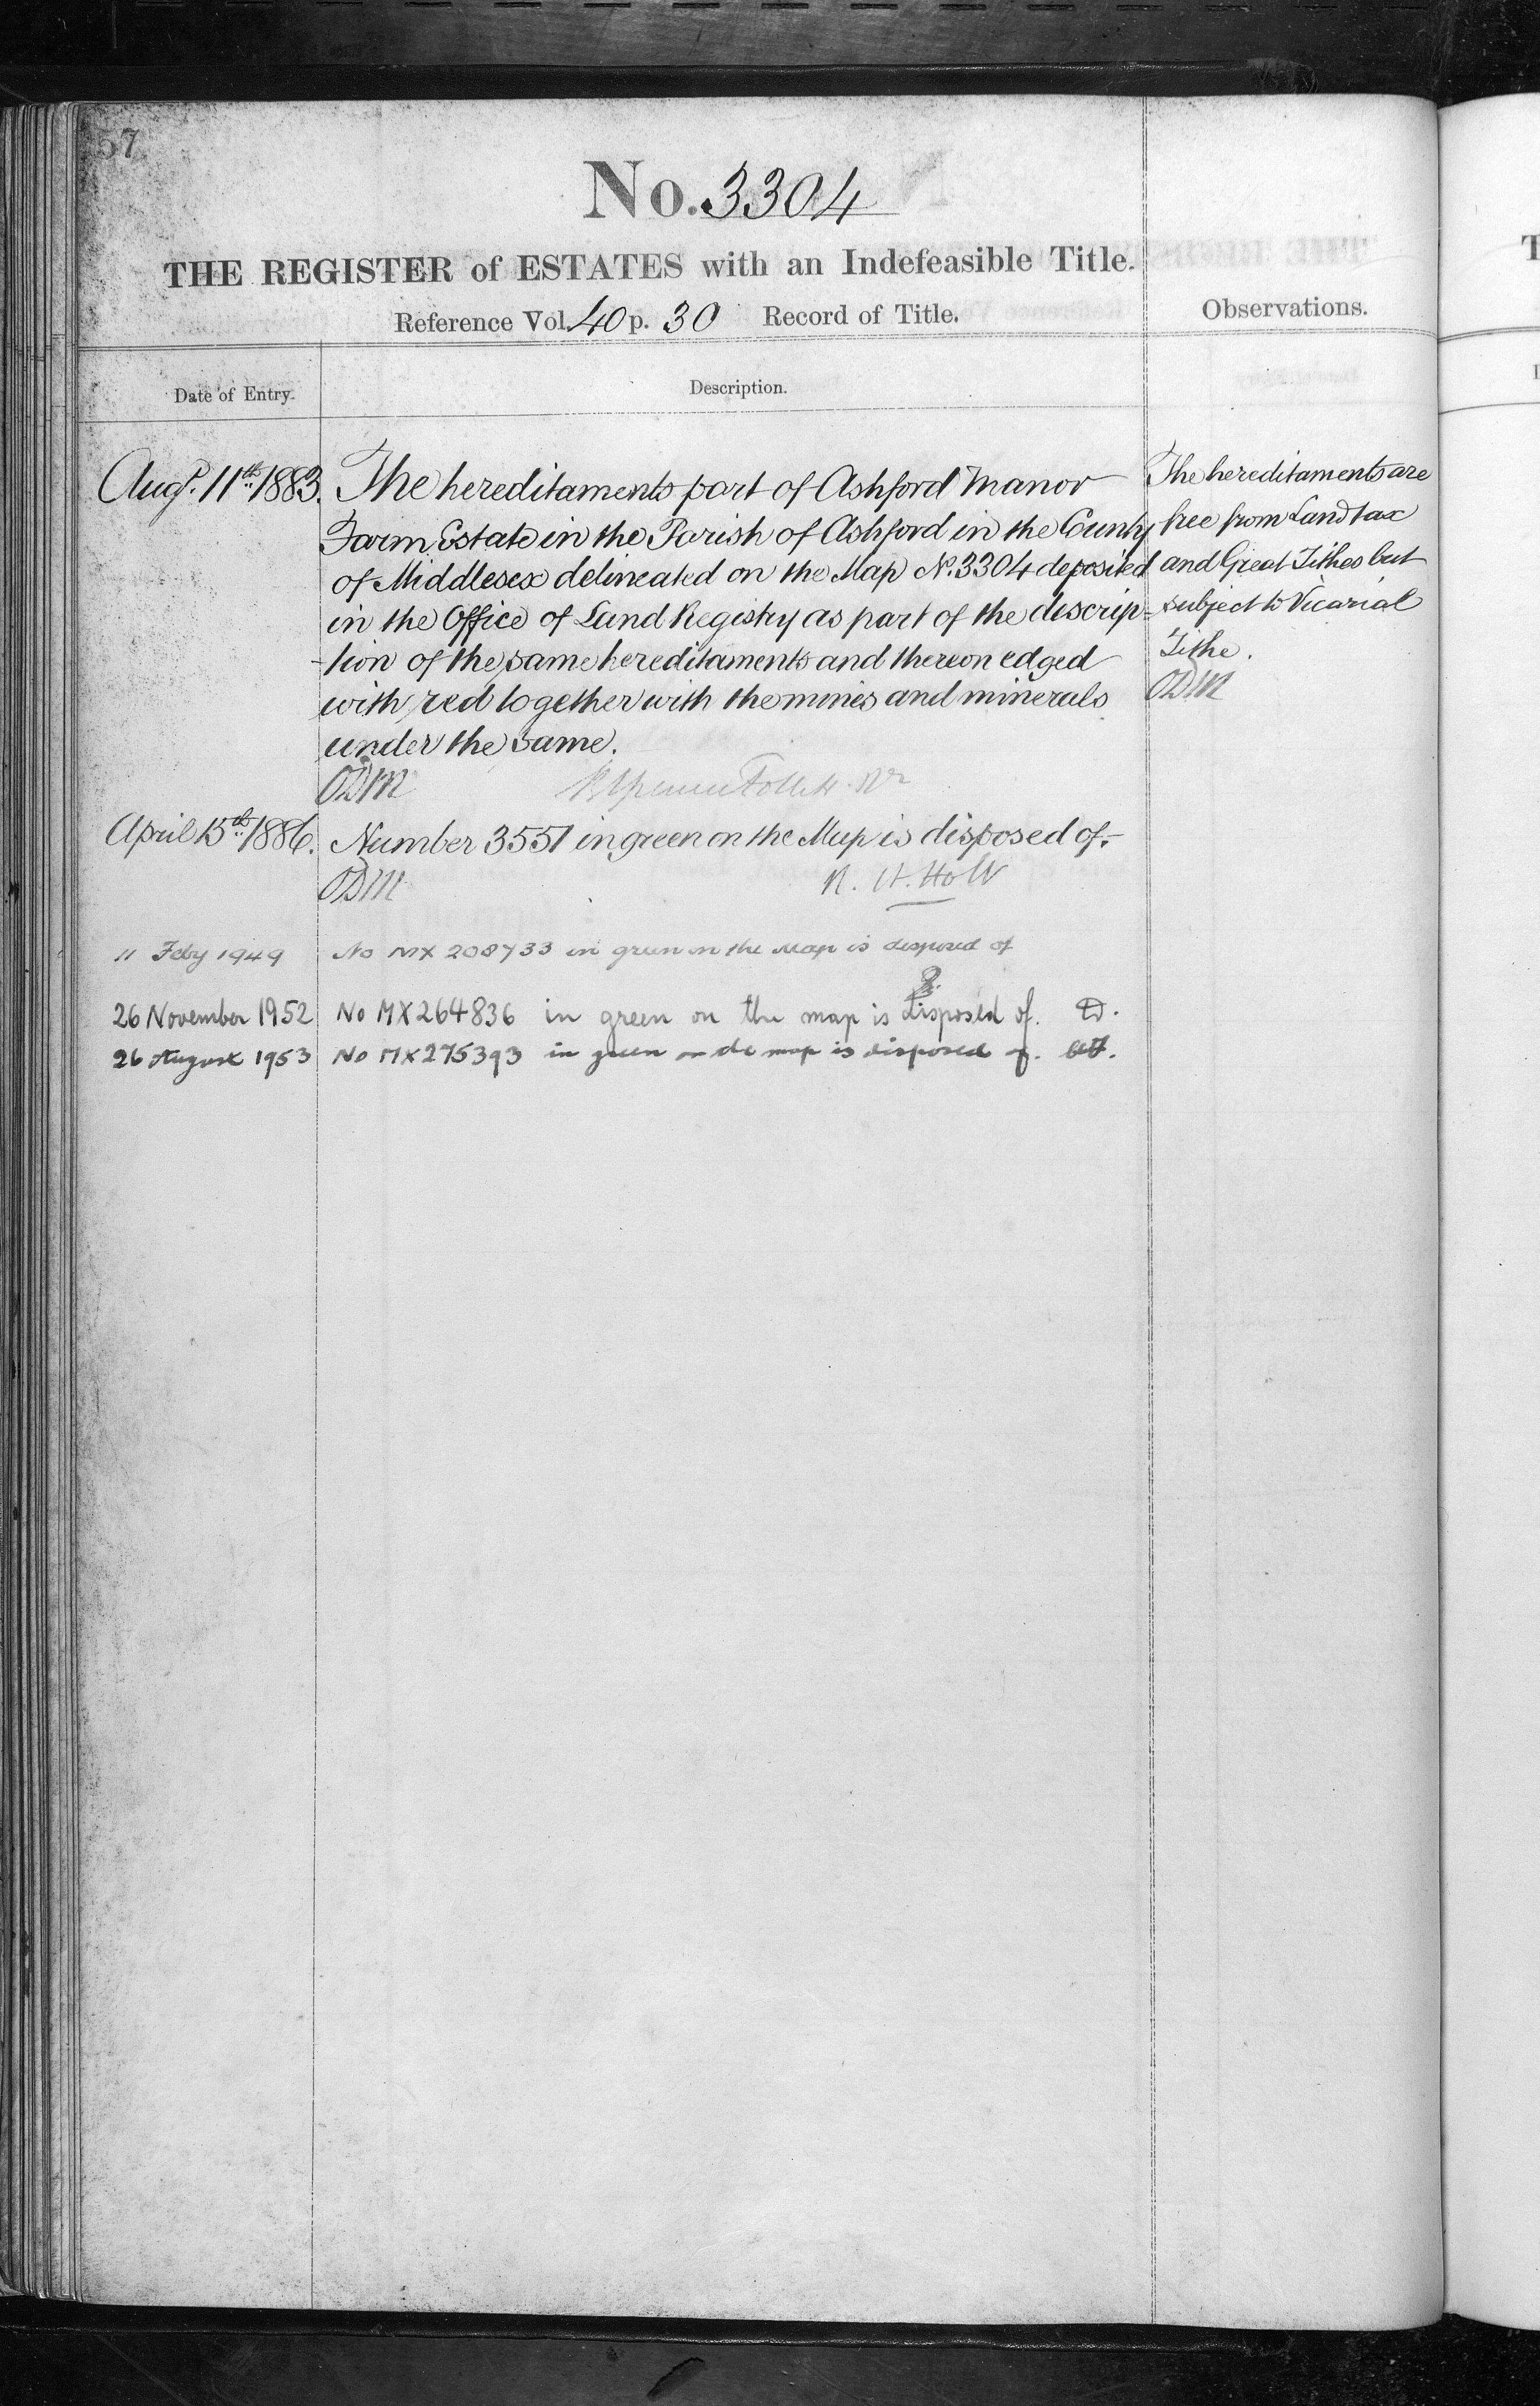 57
No. 3304
THE REGISTER of ESTATES with an Indefeasible Title.
Reference Vol. 40 p. 30 Record of Title.
Observations.
Date of Entry.
Description.
Augt. 11th 1883.
The hereditaments part of Ashford Manor
Farm Estate in the Parish of Ashford in the County
of Middlesex delineated on the Map No. 3304 deposited
in the Office of Land Registry as part of the descrip-
-tion of the same hereditaments and thereon edged
with red together with the mines and minerals
under the same.
ODM
The hereditaments are
free from Land tax
and Great Tithes but
subject to Vicarial
Tithe.
ODM
April 15th 1886.
Number 3551 in green on the Map is disposed of.-
ODM
R. H. Holt
11 Feby 1949
No MX 208733 in green on the Map is disposed of
26 November 1952
No MX264836 in green on the map is disposed of.
26 August 1953
No MX275393 in green on the map is disposed of.